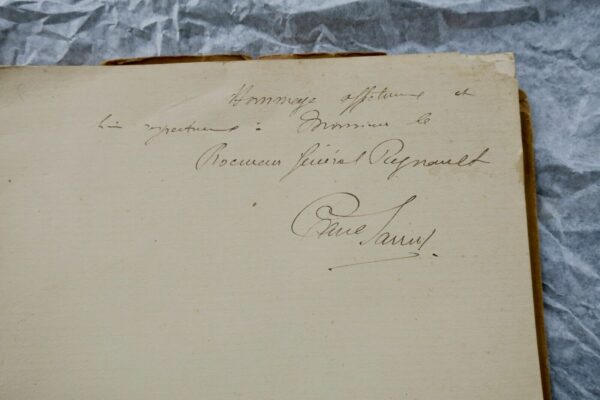 Hommage affectueux et
bien respectueux à Monsieur le
Procureur Général Regnault
Paul